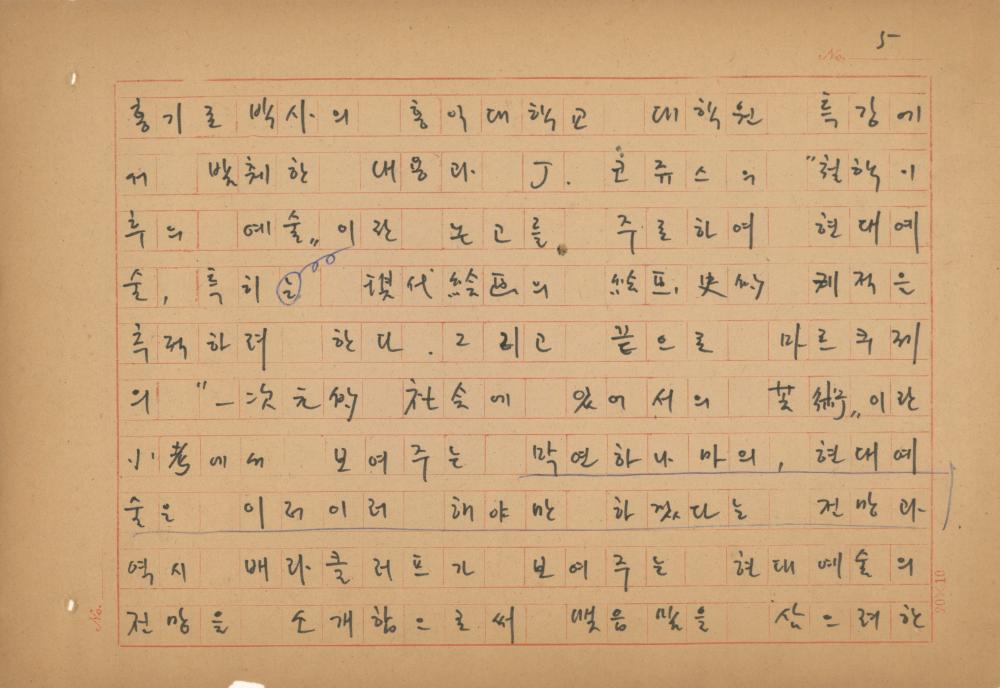 No. 5
홍기로 박사의 홍익대학교 대학원 특강에
서 발췌한 내용과 J. 코쥬스의 "철학이
후의 예술„이란 논고를 주로하여 현대예
술, 특히는 現代絵画의 絵画史的 궤적은
추적하려 한다. 그리고 끝으로 마르쿠제
의 "一次元的 社会에 있어서의 芸術„이란
小考에서 보여주는 막연하나마의, 현대예
술은 이러이러 해야만 하겠다는 전망과
역시 배라클러프가 보여주는 현대예술의
전망을 소개함으로써 맺음말을 삼으려한
No.
20×10